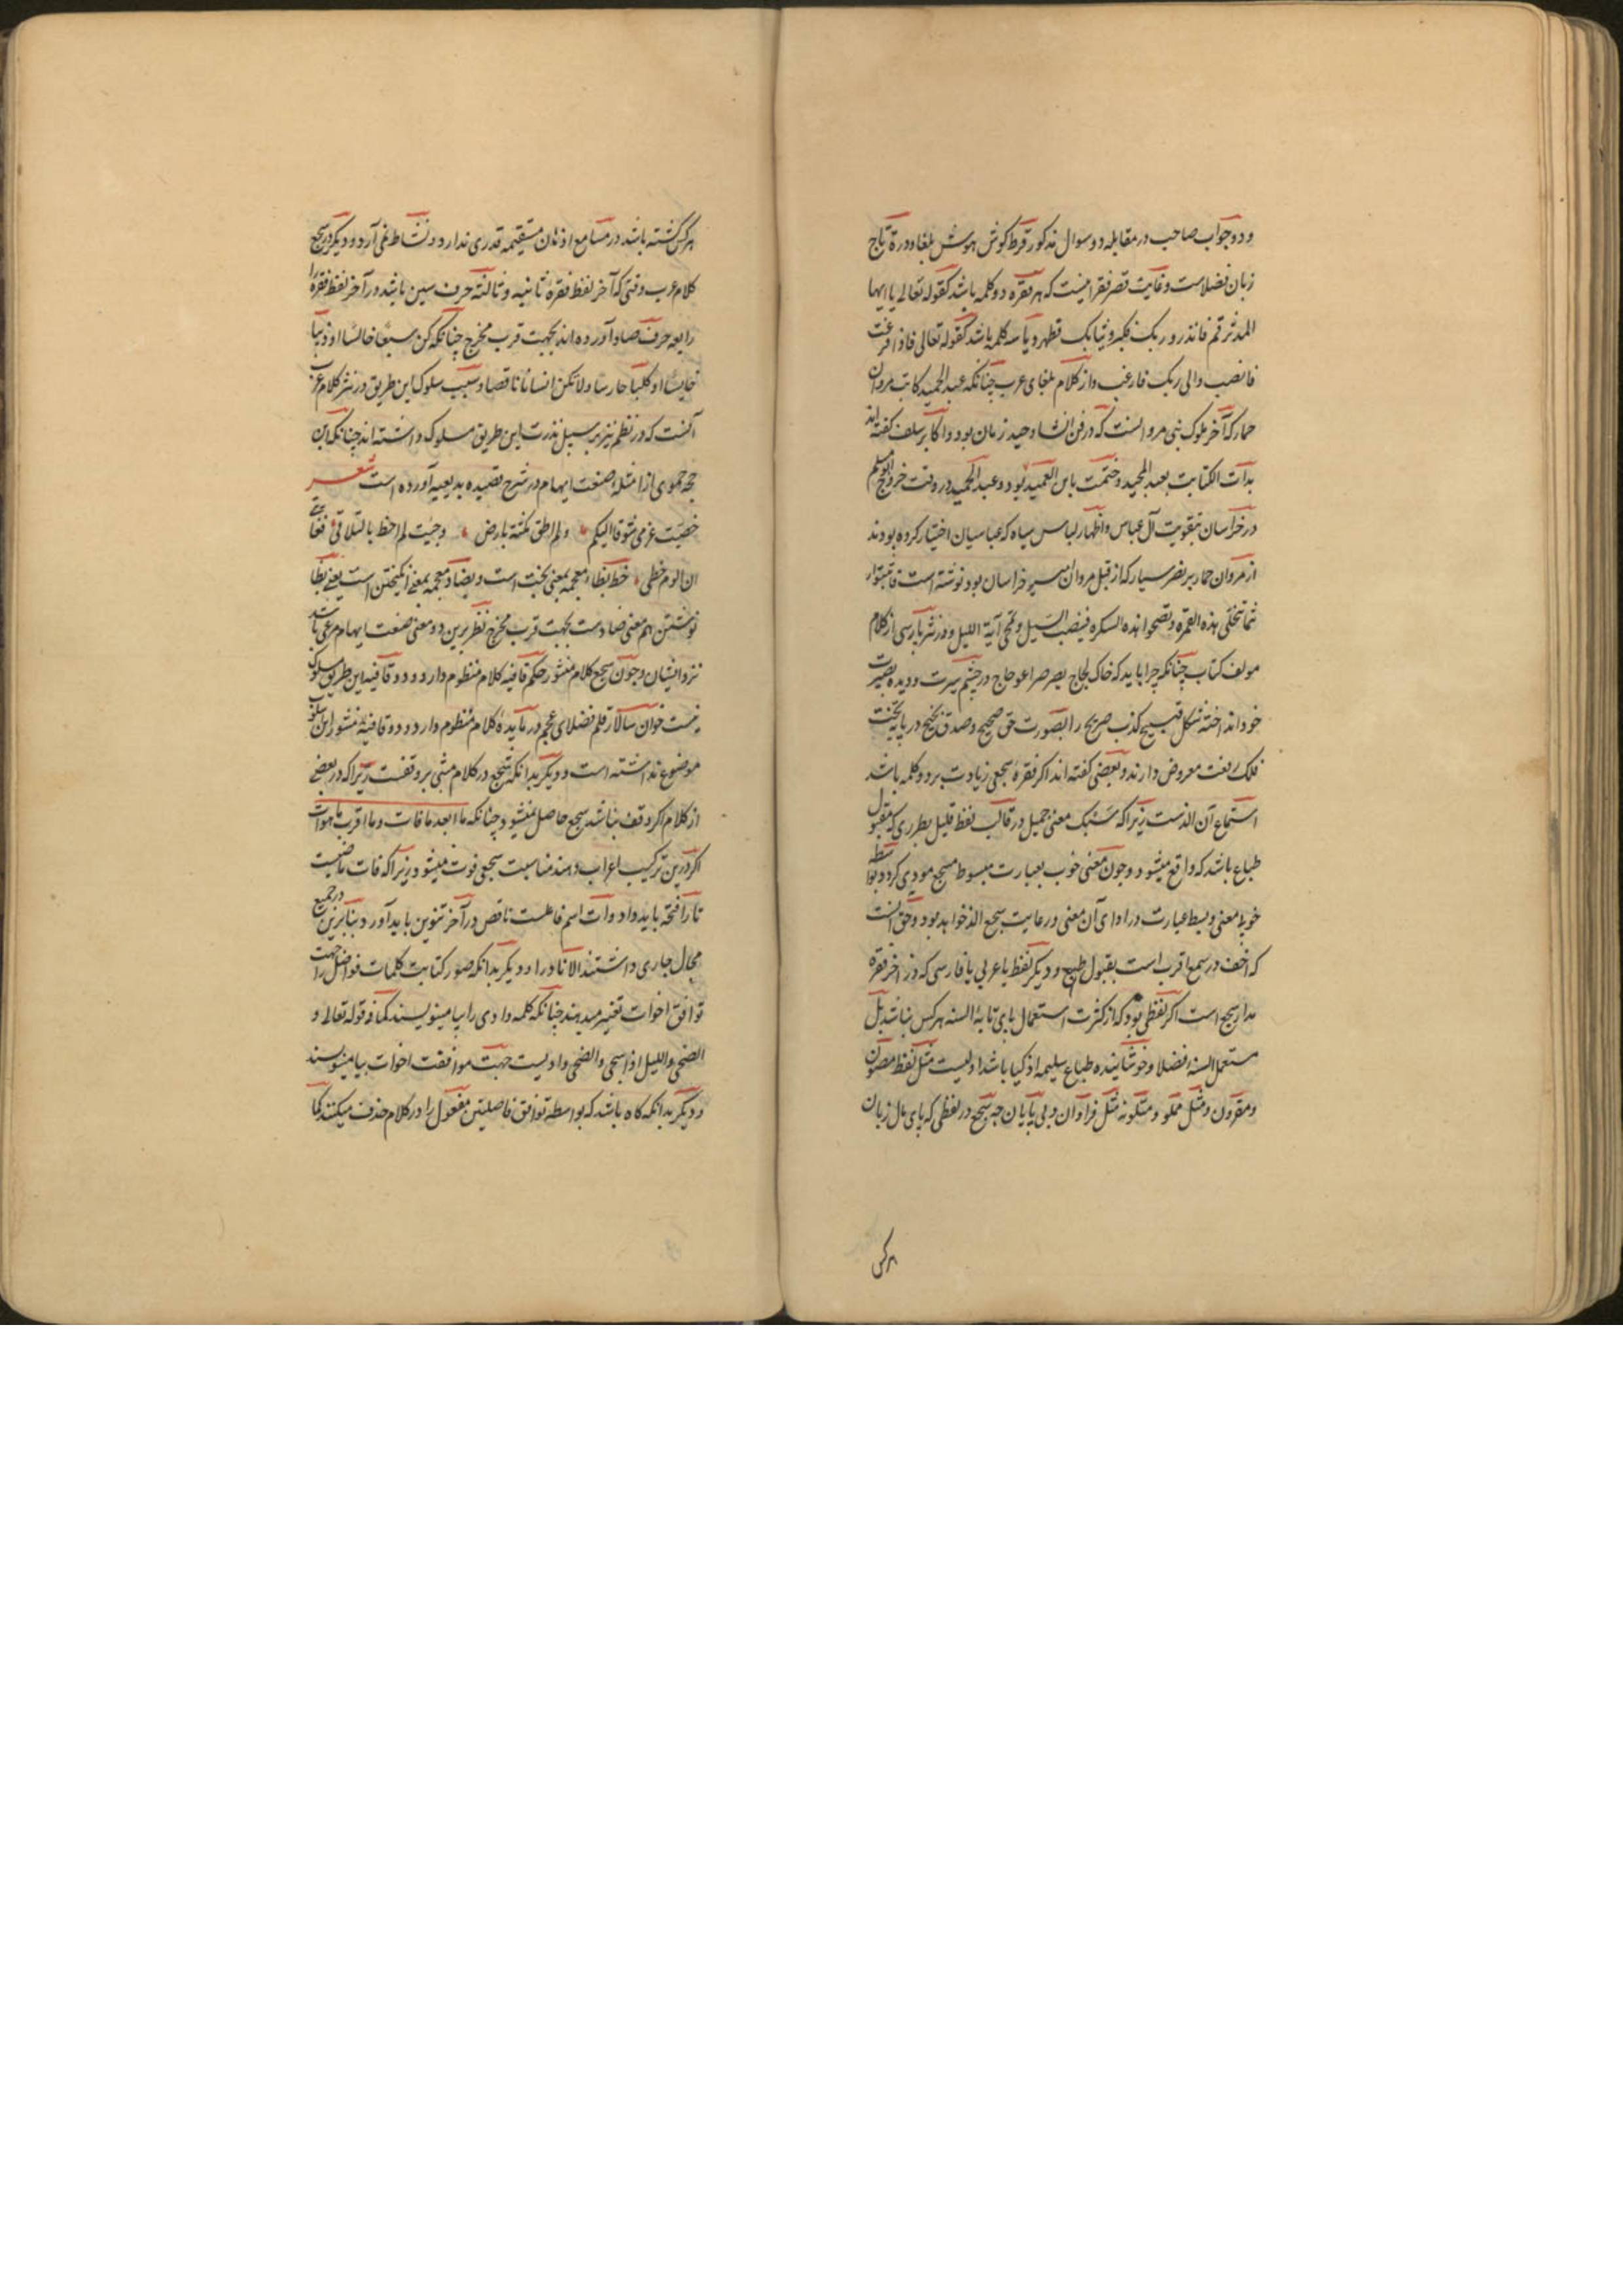 ودو جواب صاحب در مقابله دو سوال مذکور قرط کوش هوش بلغا ودرة تاج
زبان فضلاست وغایت قصر فقرا نیست که هر فقره دو کلمه باشد کقوله تعالی یا ایها
المدثر قم فانذر و ربک فکبر وثیابک فطهر ویا سه کلمه باشد کقوله تعالی فاذا فرغت
فانصب والی ربک فارغب واز کلام بلغای عرب چنانکه عبد الحمید کاتب مروان
حمار که آخر ملوک بنی مروانست که در فن انشا وحید زمان بود واکابر سلف کفته اند
بدأت الکتابت بعبد الحمید وختمت بابن العمید بود وعبد الحمید در وقت خروج ابو مسلم
در خراسان بتقویت آل عباس واظهار لباس سیاه که عباسیان اختیار کرده بودند
از مروان حمار بر نصر سیار که از قبل مروان میر خراسان بود نوشته است فاثبتوا
تنجلی هذه الغمرة وتصحوا هذه السکره فینضب السیل وتمحی آیة اللیل ودر نثر پارسی از کلام
مولف کتاب چنانکه چرا باید که خاک لجاج بصرصر اعوجاج در چشم سیرت ودیده بصیرت
خود انداخته شکل قبیح کذب صریح را بصورت حق صحیح وصدق نجیح در پایه تخت
فلک رفعت معروض دارند وبعضی کفته اند اکر فقره سجعی زیادت بر دو کلمه باشد
استماع آن الذست زیرا که سبک معنی جمیل در قالب لفظ قلیل بطرزی که مقبول
طباع باشد کم واقع میشود وچون معنی خوب بعبارت مبسوط مسجع مودی کردد بواسطه
خوبی معنی وبسط عبارت در ادای آن معنی ورعایت سجع الذ خواهد بود وحق آنست
که اخف در سمع اقرب است بقبول طبع ودیکر لفظ یا عربی یا فارسی که در آخر فقره
مدار سجع است اکر لفظی بود که از کثرت استعمال پای تابهٔ السنه هرکس نباشد بل
مستعمل السنه فضلا وخوشاینده طباع سلیمه اذکیا باشد اولیست مثل لفظ مصون
ومقرون ومثل مملو ومتلو نه مثل فراوان وبی پایان چه سجع در لفظی که پای مال زبان
هرکس
هرکس کشته باشد در مسامع اذهان مستقیمه قدری ندارد ونشاط نمی آرد ودیکر در سجع
کلام عرب وقتی که آخر لفظ فقرهٔ ثانیه وثالثه حرف سین باشد در آخر لفظ فقرهٔ
رابعه حرف صاد آورده اند بجهت قرب مخرج چنانکه کن سبعا خالسا او ذئبا
خایسا او کلبا حارسا ولا تکن انسانا ناقصا وسبب سلوک این طریق در نثر کلام عرب
آنست که در نظم نیز بر سبیل ندرت این طریق مسلوک داشته اند چنانکه ابن
حجه حموی از امثلهٔ صنعت ایهام در شرح قصیده بدیعیه آورده است شعر
خصیت عزمی شوقا الیکم ولم اطق مکثه بارض وجیت لم احظ بالتلاقی
ان الوم حظی حظ بظاء معجمه بمعنی بخت است وبضاد معجمه بمعنی انکیختن است یعنی بظا
نوشتن هم معنی ضادست بجهت قرب مخرج نظر برین دو معنی صنعت ایهام مرعی باشد
نزد ایشان وچون سجع کلام منثور حکم قافیه کلام منظوم دارد ودر قافیه این طریق مسلوک
نیست خوان سالار قلم فضلای عجم در مایدهٔ کلام منظوم دارد ودر قافیهٔ منثور این اسلوب
موضوع نداشته است ودیکر بدانکه سجع در کلام مبنی بر وقفست زیرا که در بعضی
از کلام اکر وقف نباشد سجع حاصل نمیشود چنانکه ما ابعد ما فات وما اقرب ما هو آت
اکر درین ترکیب اعراب دهند مناسبت سجعی فوت میشود زیرا که فات ماضیست
تا را فتحه باید داد وآت اسم فاعلست ناقص در آخر تنوین باید آورد وبنابرین در جمیع
مجال جاری داشتند الا نادرا ودیکر بدانکه صور کتابت کلمات فواصل را جهت
توافق اخوات تغییر میدهند چنانکه کلمه واوی را بیا مینویسند کما فی قوله تعالی و
الضحی واللیل اذا سجی والضحی واویست جهت موافقت اخوات بیا مینویسند
ودیکر بدانکه کاه باشد که بواسطه توافق فاصلیتن مفعول را در کلام حذف میکنند کما